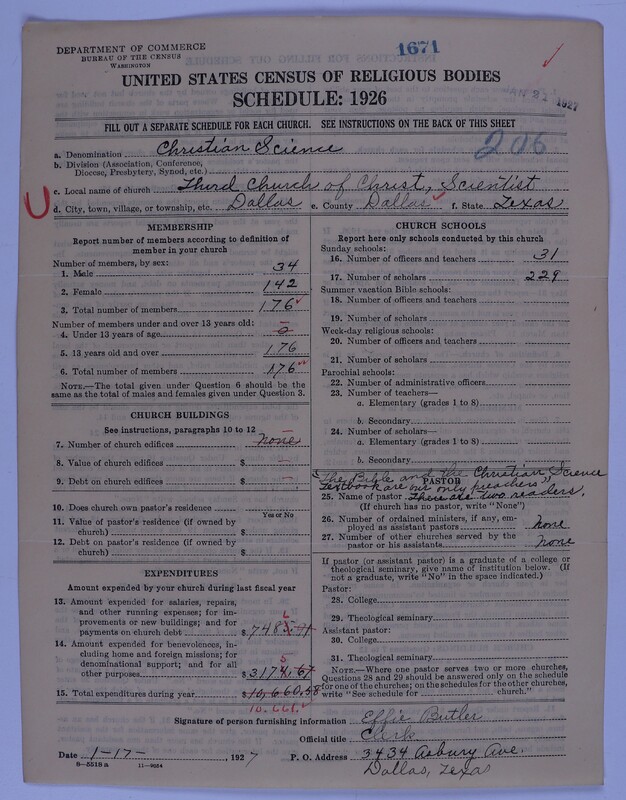 DEPARTMENT OF COMMERCE
BUREAU OF THE CENSUS
WASHINGTON
1671
UNITED STATES CENSUS OF RELIGIOUS BODIES
SCHEDULE: 1926
JAN 22 1927
FILL OUT A SEPARATE SCHEDULE FOR EACH CHURCH. SEE INSTRUCTIONS ON THE BACK OF THIS SHEET
206
a. Denomination Christian Science
b. Division (Association, Conference, Diocese, Presbytery, Synod, etc.)
c. Local name of church Third Church of Christ, Scientist
d. City, town, village, or township, etc. Dallas e. County Dallas f. State Texas
MEMBERSHIP
Report number of members according to definition of member in your church
Number of members, by sex:
1. Male 34
2. Female 142
3. Total number of members 176
Number of members under and over 13 years old:
4. Under 13 years of age 0
5. 13 years old and over 176
6. Total number of members 176
NOTE.—The total given under Question 6 should be the same as the total of males and females given under Question 3.
CHURCH BUILDINGS
See instructions, paragraphs 10 to 12
7. Number of church edifices none
8. Value of church edifices $
9. Debt on church edifices $
10. Does church own pastor's residence
Yes or No
11. Value of pastor's residence (if owned by church) $
12. Debt on pastor's residence (if owned by church) $
EXPENDITURES
Amount expended by your church during last fiscal year
13. Amount expended for salaries, repairs, and other running expenses; for improvements or new buildings; and for payments on church debt $
14. Amount expended for benevolences, including home and foreign missions; for denominational support; and for all other purposes $ 3174.67
15. Total expenditures during year $ 10,660.58
10.661.
CHURCH SCHOOLS
Report here only schools conducted by this church
Sunday schools:
16. Number of officers and teachers 31
17. Number of scholars 229
Summer vacation Bible schools:
18. Number of officers and teachers
19. Number of scholars
Week-day religious schools:
20. Number of officers and teachers
21. Number of scholars
Parochial schools:
22. Number of administrative officers
23. Number of teachers—
a. Elementary (grades 1 to 8)
b. Secondary
24. Number of scholars—
a. Elementary (grades 1 to 8)
b. Secondary
"The Bible and the Christian Science
PASTOR
textbook are our only preachers"
25. Name of pastor There are two readers.
(If church has no pastor, write "None")
26. Number of ordained ministers, if any, employed as assistant pastors none
27. Number of other churches served by the pastor or his assistants none
If pastor (or assistant pastor) is a graduate of a college or theological seminary, give name of institution below. (If not a graduate, write "No" in the space indicated.)
Pastor:
28. College
29. Theological seminary
Assistant pastor:
30. College
31. Theological seminary
NOTE.—Where one pastor serves two or more churches, Questions 28 and 29 should be answered only on the schedule for one of the churches; on the schedules for the other churches, write "See schedule for church."
Signature of person furnishing information Effie Butler
Official title Clerk
Date 1-17-, 1927 P. O. Address 3434 Asbury Ave.
Dallas, Texas
8—5518 a 11—9354